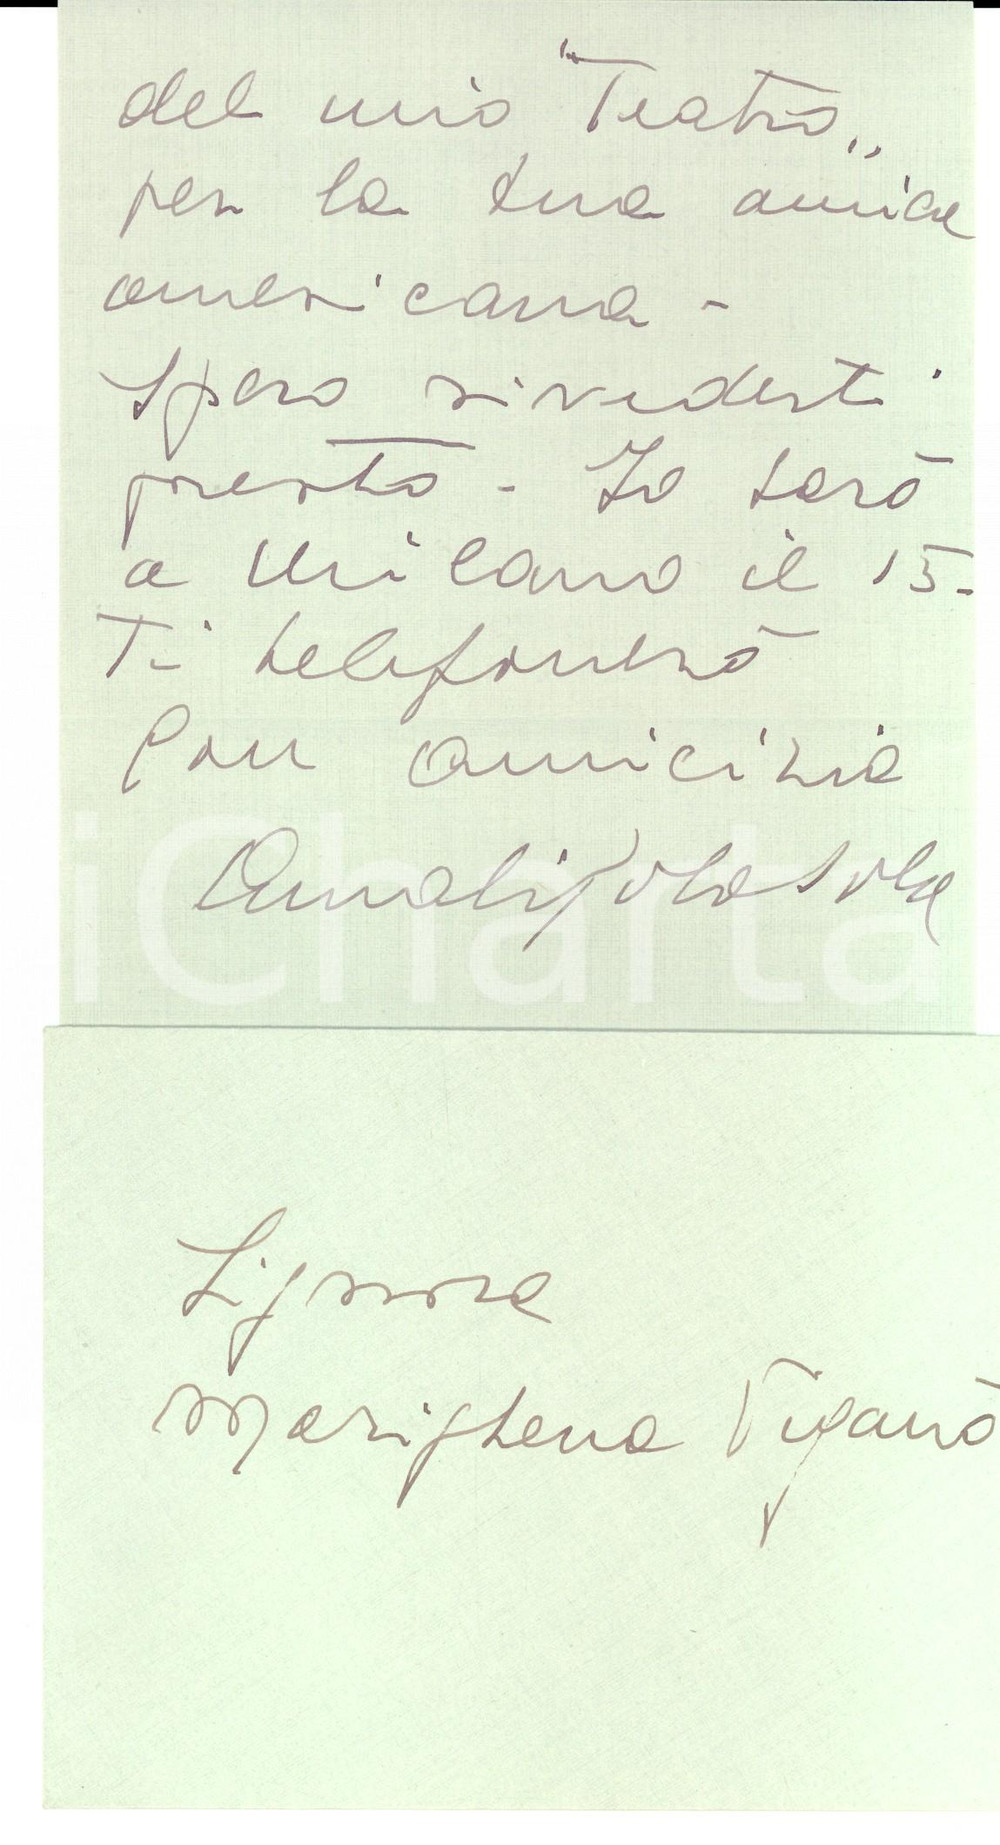 del mio "Teatro„
per la tua amica
americana -
Spero rivederti
presto - Io sarò
a Milano il 15-
Ti telefonerò
Con amicizia
iCharta
Signora
Marighena Viganò